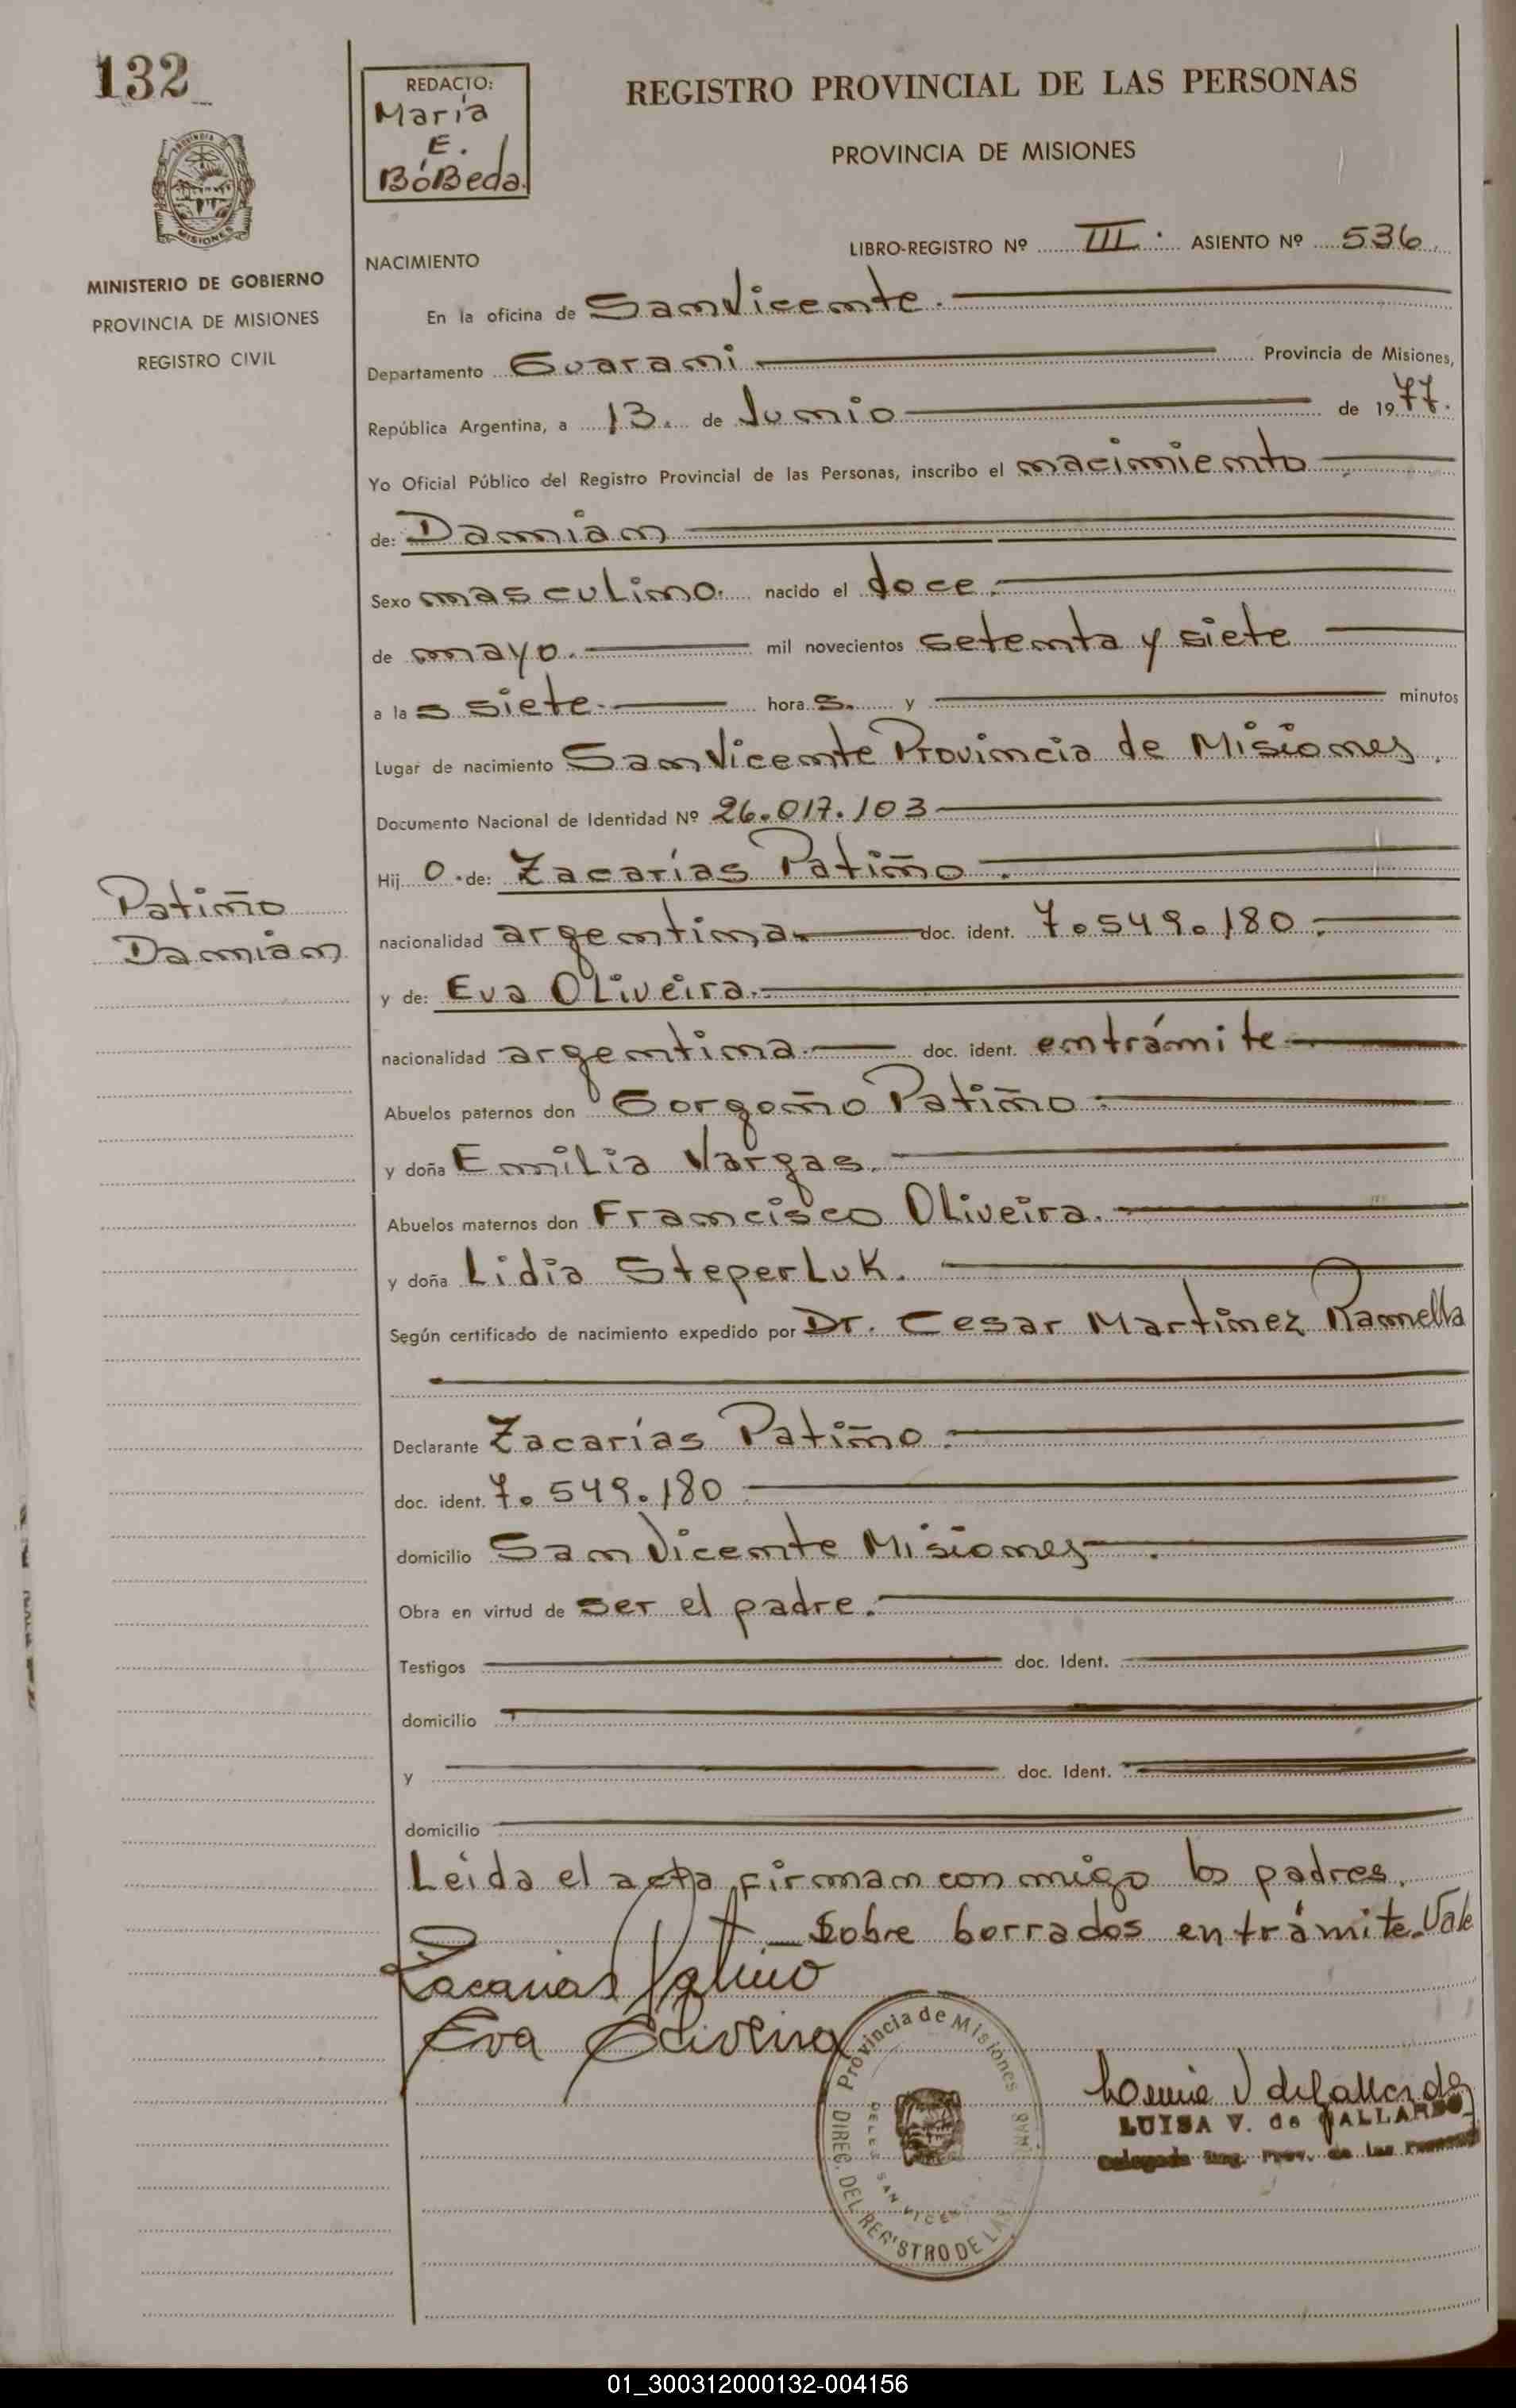 132
REDACTO:
María
E.
BóBeda.
REGISTRO PROVINCIAL DE LAS PERSONAS
PROVINCIA DE MISIONES
MINISTERIO DE GOBIERNO
PROVINCIA DE MISIONES
REGISTRO CIVIL
LIBRO-REGISTRO Nº III. ASIENTO Nº 536.
NACIMIENTO
En la oficina de San Vicente.
Departamento Guarani Provincia de Misiones,
República Argentina, a 13. de Junio de 1977.
Yo Oficial Público del Registro Provincial de las Personas, inscribo el nacimiento
de: Damián
Sexo masculino. nacido el doce.
de mayo. mil novecientos setenta y siete
a las siete. horas. y minutos
Lugar de nacimiento San Vicente Provincia de Misiones.
Documento Nacional de Identidad Nº 26.017.103
Hijo de: Zacarías Patiño.
Patiño
Damián
nacionalidad argentina. doc. ident. 7.549.180.
y de: Eva Oliveira.
nacionalidad argentina. doc. ident. entrámite
Abuelos paternos don Gorgoño Patiño.
y doña Emilia Vargas.
Abuelos maternos don Francisco Oliveira.
y doña Lidia Steperluk.
Según certificado de nacimiento expedido por Dr. Cesar Martinez Ramella
Declarante Zacarías Patiño.
doc. ident. 7.549.180
domicilio San Vicente Misiones.
Obra en virtud de ser el padre.
Testigos doc. Ident.
domicilio
y doc. Ident.
domicilio
Leida el acta firman con migo los padres.
Sobre borrados entrámite. Vale
Zacarias Patiño
Eva Oliveira
Provincia de Misiones
DIREC. DEL REGISTRO DE LAS
SAN VICEN
LUISA V. de GALLARDO
Delegada Reg. Prov. de las Personas
01_300312000132-004156